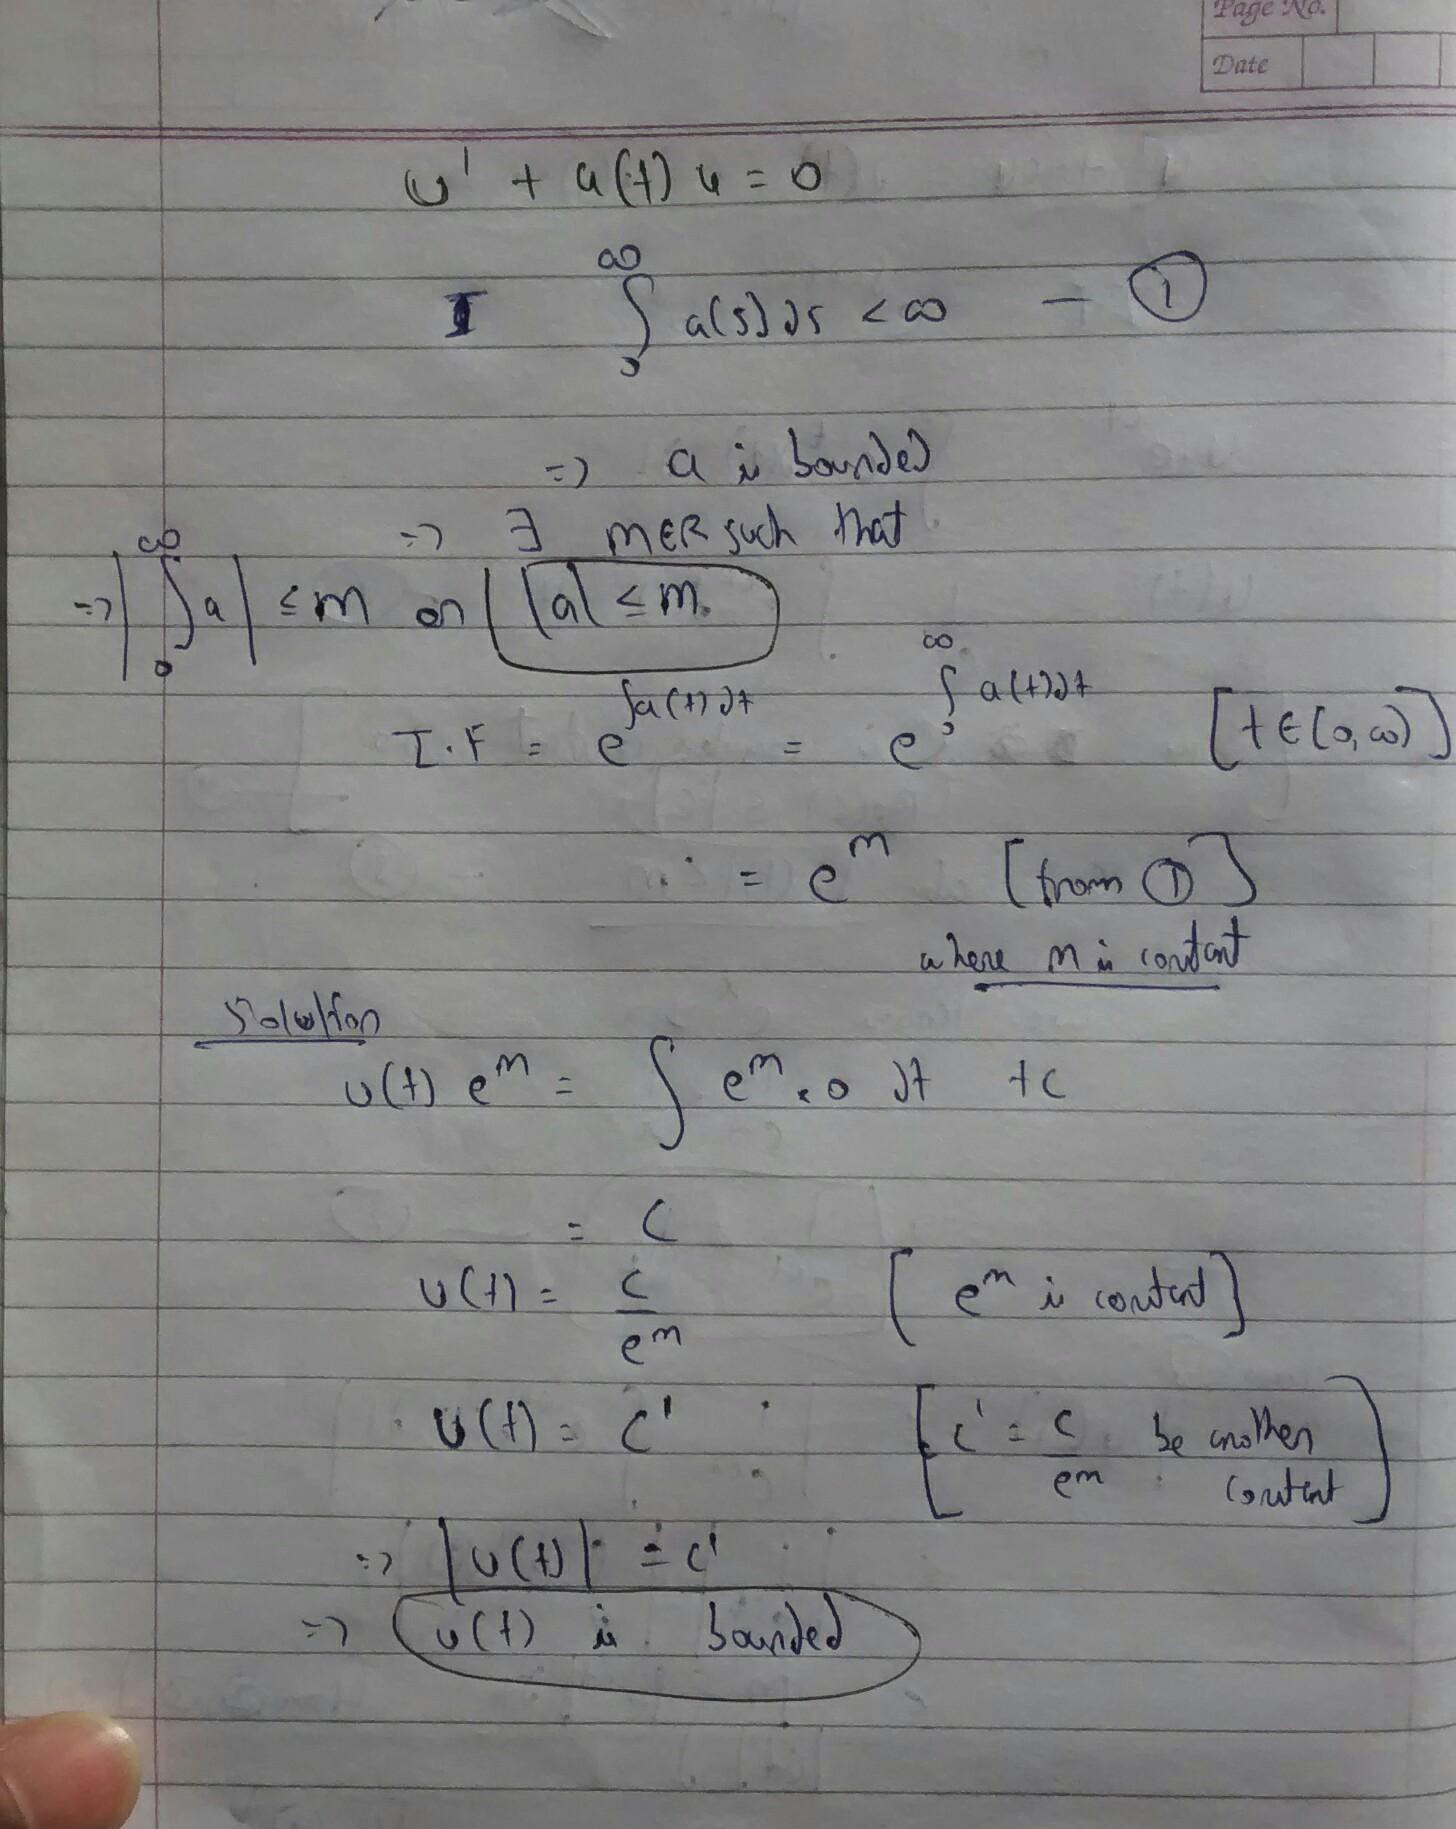 Page No.
Date
u' + a(t) u = 0
I ∫₀^∞ a(s) ds < ∞ — ①
=> a is bounded
=> ∃ m∈R such that
=> |∫₀^∞ a| ≤ m or |a| ≤ m.
I.F = e^{∫a(t)dt} = e^{∫₀^∞ a(t)dt} [t ∈ (0,∞)]
= e^m [from ①]
where m is contant
Solution
u(t) e^m = ∫ e^m × 0 dt + c
= c
u(t) = c/e^m [e^m is contant]
u(t) = c' [c' = c/e^m be another contant]
=> |u(t)| = c'
=> u(t) is bounded